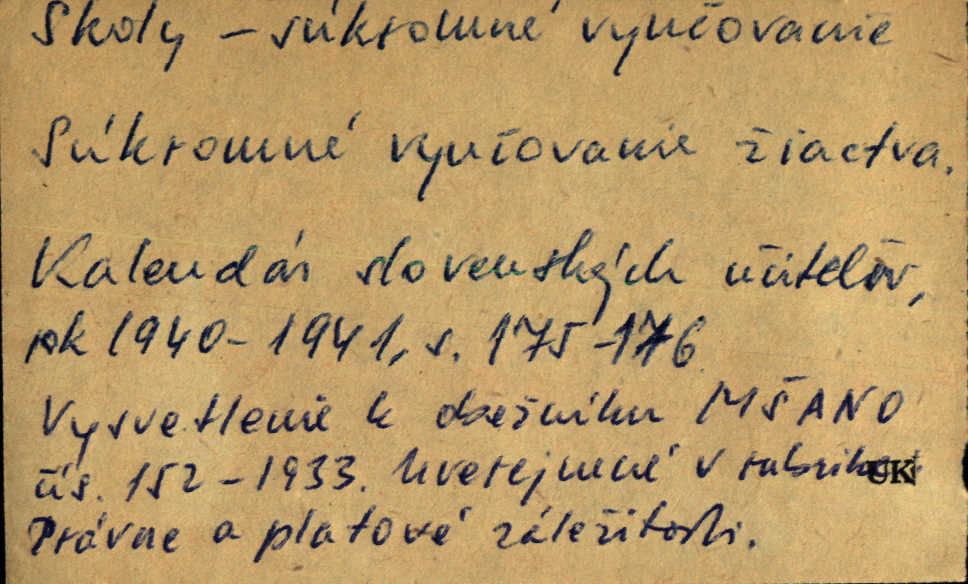 Školy - súkromné vyučovanie
Súkromné vyučovanie žiactva.
Kalendár slovenských učiteľov,
rok 1940-1941, s. 175-176
Vysvetlenie k obežníku MŠANO
čís. 152-1933. Uverejnené v rubrike:
UK
Právne a platové záležitosti.